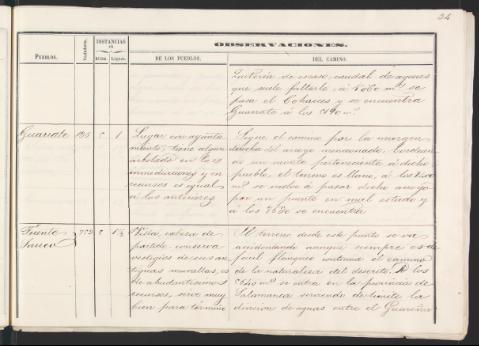 24
OBSERVACIONES.
DISTANCIAS
en
PUEBLOS.
Horas.
Leguas.
DE LOS PUEBLOS.
DEL CAMINO.
de escaso caudal de aguas
que suele faltarle, á
pasa el y se encuentra
Guarrate á los
Guarrate 125 1
Lugar con ayunta
miento, tiene algun
arbolado en las
inmediaciones y en
recursos es igual
á los anteriores
Sigue el camino por la margen
derecha del arroyo mencionado,
de un monte perteneciente á dicho
pueblo, el terreno es llano, á los
se vuelve á pasar dicho arroyo
por un puente en mal estado y
á los 7650 se encuentra
Fuente
Sauco 759
Villa, cabeza de
partido conserva
vestigios de sus an
tiguas murallas, es
de abundantísimos
recursos, sirve muy
bien para término
El terreno desde este punto se va
accidentando aunque siempre es de
facil flanqueo continua el camino
de la naturaleza del descrito. A los
se entra en la provincia de
Salamanca sirviendo de limite la
division de aguas entre el Guareña